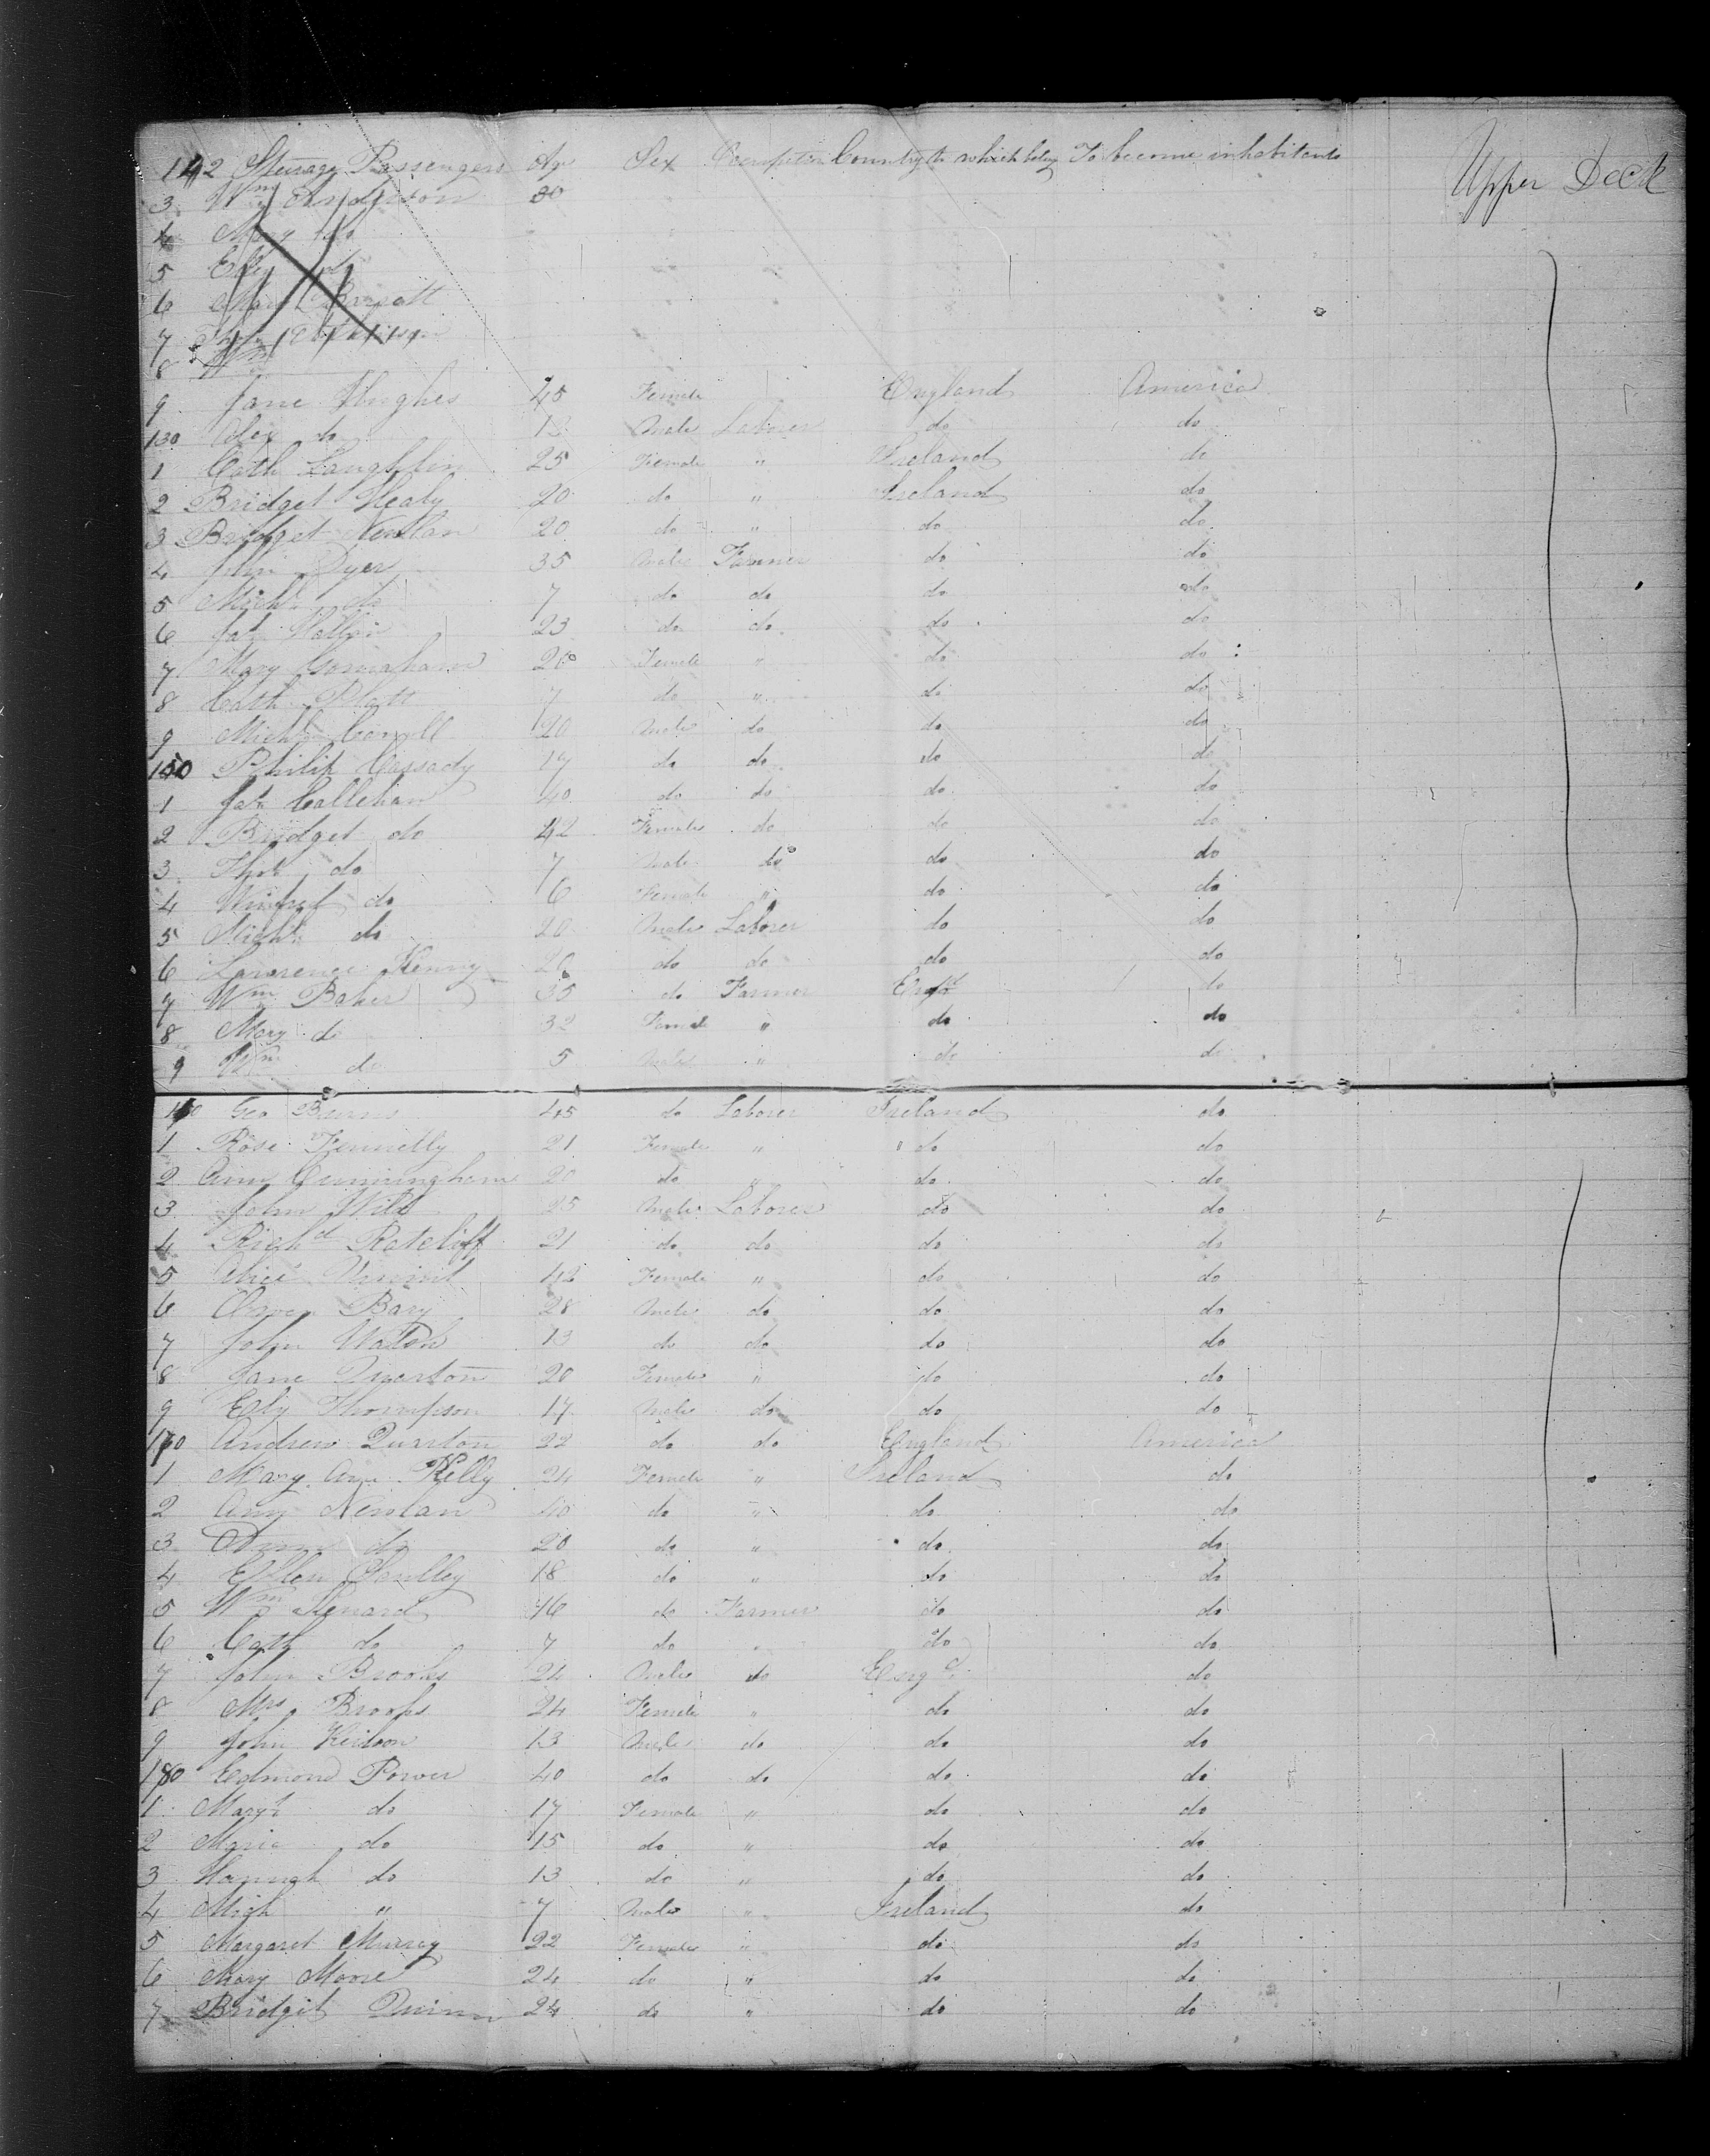 142 Steerage Passengers Age Sex Occupation Country to which belong To become inhabitants
Upper Deck
3 Wm Anderson 30
4 Mary do
5 Eliz do
6 Mary
7
8 Wm
9 Jane Hughes 45 Female England America
130 Alex do 12 Male Laborer do do
1 Cath Laughlin 25 Female " Ireland do
2 Bridget Healy 20 do " Ireland do
3 Bridget Newlan 20 do " do do
4 John Dyer 35 Male Farmer do do
5 Michl do 7 do do do do
6 Jas 23 do do do do
7 Mary 20 Female " do do
8 Cath Platt 7 do " do do
9 Michl 20 Male do do do
150 Philip Cassady 19 do do do do
1 Jas Callehan 40 do do do do
2 Bridget do 42 Female do do do
3 Thos do 7 Male do do do
4 Winfret do 6 Female " do do
5 Michl do 20 Male Laborer do do
6 Lawrence Kenny 20 do do do do
7 Wm Baker 35 do Farmer Engd do
8 Mary do 32 Female " do do
9 Wm do 5 Male " do do
160 Geo Burns 45 do Laborer Ireland do
1 Rose Fennelly 21 Female " do do
2 Ann Cunningham 20 do " do do
3 John Wild 25 Male Laborer do do
4 Richd Ratcliff 21 do do do do
5 Alice 42 Female " do do
6 Owen Bary 28 Male do do do
7 John Walsh 13 do do do do
8 Jane Quarton 20 Female " do do
9 Ely Thompson 17 Male do do do
170 Andrew Quarton 22 do do England America
1 Mary Ann Kelly 24 Female " Ireland do
2 Any Newlan 40 do " do do
3 Anne do 20 do " do do
4 Ellen Sculley 18 do " do do
5 Wm 16 do Farmer do do
6 Cath do 7 do " do do
7 John Brooks 24 Male do Engd do
8 Mrs Brooks 24 Female " do do
9 John 13 Male do do do
180 Edmond Power 40 do do do do
1 Maryt do 17 Female " do do
2 Maria do 15 do " do do
3 Hannah do 13 do " do do
4 Migh " 7 Male " Ireland do
5 Margaret Murray 22 Female " do do
6 Mary Moore 24 do " do do
7 Bridgit Quinn 24 do " do do